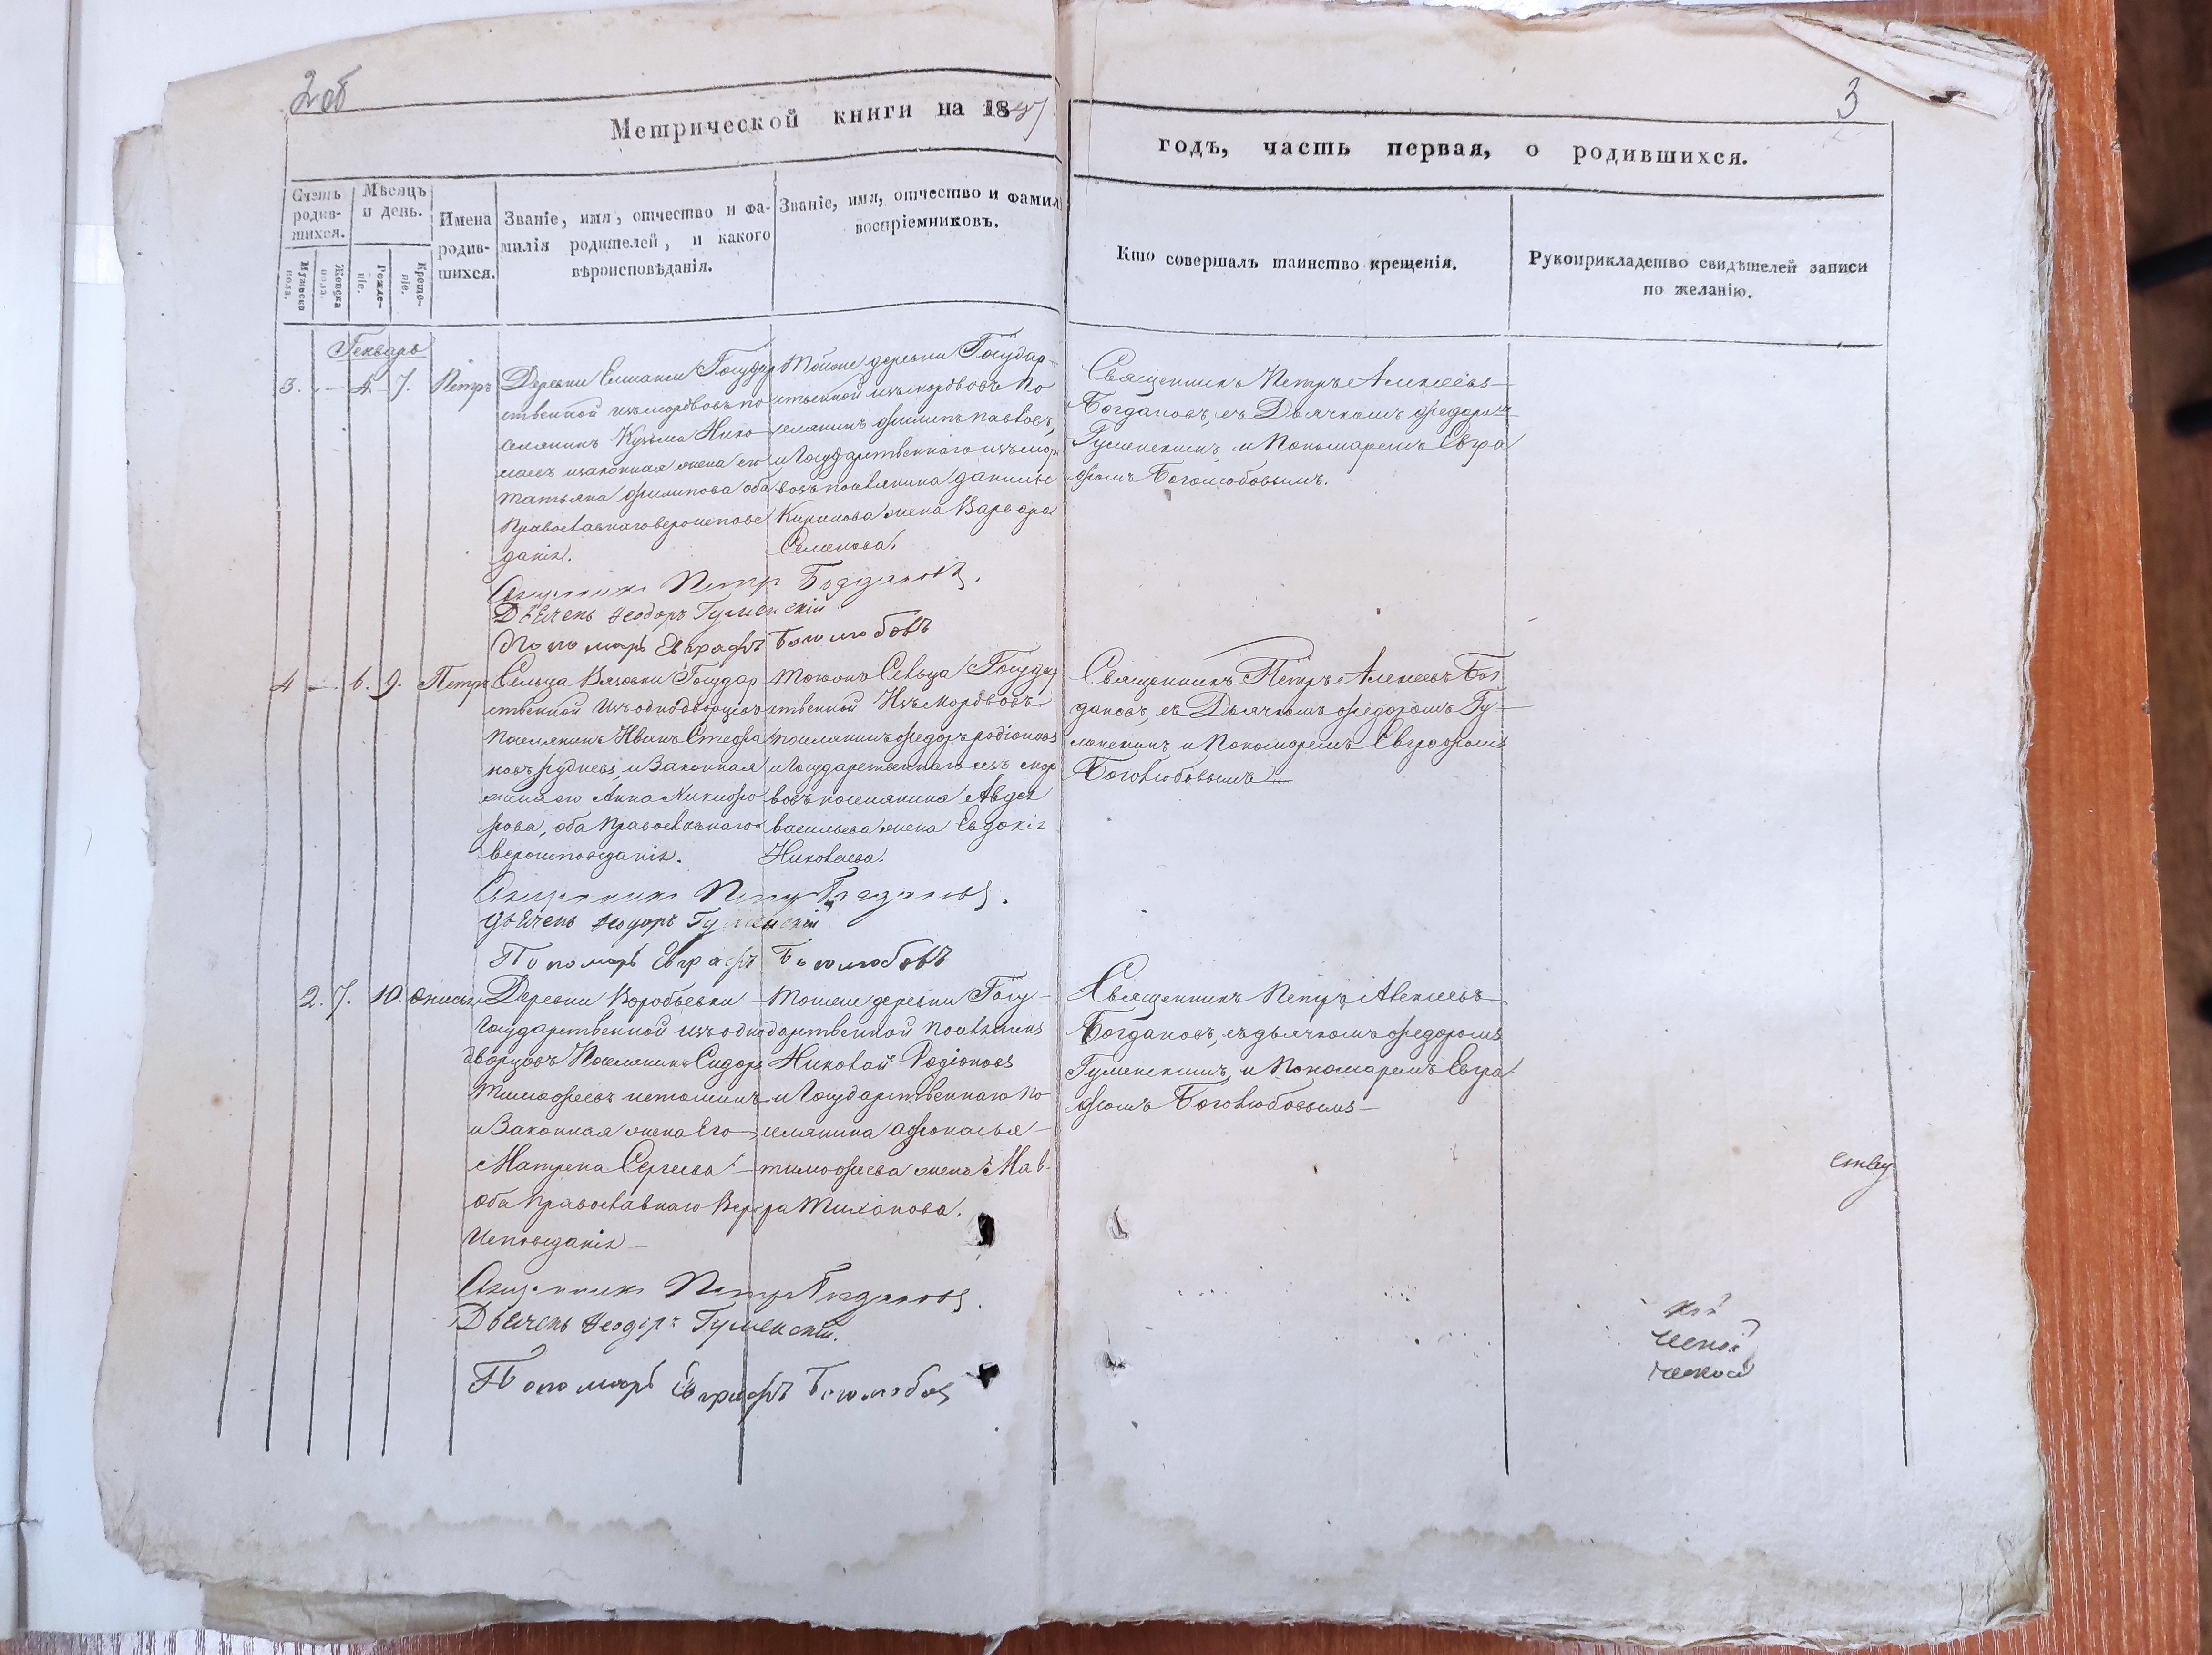 2 об
3
Метрической книги на 1847
годъ, часть первая, о родившихся.
Счетъ родив-шихся.
Мѣсяцъ и день.
Мужеска пола.
Женска пола.
Рожде-ніе.
Креще-ніе.
Имена родив-шихся.
Званіе, имя, отчество и фа-
милія родителей, и какого
вѣроисповѣданія.
Званіе, имя, отчество и фамил
воспріемниковъ.
Кто совершалъ таинство крещенія.
Рукоприкладство свидѣтелей записи
по желанію.
Генварь
3. — 4. 7. Петръ
Деревни Елшанки Государ
ственной изъ мордвовъ по
селянинъ Кузьма Нико
лаевъ изаконная жена его
Татьяна Филипова оба
Православнаго вероисповѣ
данія.
Тойже деревни Государ-
ственной изъ мордвовъ по
селянинъ Филипъ Павловъ,
и Государственнаго изъ морд
вовъ поселянина Данилы
Кирилова жена Варвара
Семенова.
Священникъ Петръ Алексѣевъ
Богдановъ, съ Дьячкомъ Федоромъ
Гуменскимъ и Пономаремъ Евгра
фомъ Боголюбовымъ.
Священникъ Петръ Богдановъ.
Дьячекъ Феодоръ Гуменскій
Пономарь Евграфъ Боголюбовъ
4 — 6. 9. Петръ
Сельца Вязовки Государ
ственной Изъ однодворцевъ
Поселянинъ Иванъ Стефа
новъ Рудневъ, и Законная
жена его Анна Никифо
рова, оба Православнаго
вероисповеданія.
Тогожъ Сельца Государ
ственной Изъ Мордвовъ
поселянинъ Федоръ Родіоновъ
и Государственнаго изъ мор
вовъ поселянина Авдея
васильева жена Евдокія
Николаева.
Священникъ Петръ Алексеевъ Бог
дановъ, съ Дьячкомъ Федоромъ Гу-
менскимъ и Пономаремъ Евграфомъ
Боголюбовымъ
Священникъ Петръ Богдановъ.
Дьячекъ Феодоръ Гуменскій
Пономарь Евграфъ Боголюбовъ
2. 7. 10.
Деревни Воробьевки
Государственной изъ одно
дворцовъ Поселянинъ Сидоръ
Тимофеевъ
и Законная жена Его
Матрена Сергеева
Оба Православнаго Веро
Исповеданія
Тойже деревни Госу-
дарственной Поселянинъ
Николай Родіоновъ
и Государственнаго по
селянина Афонасья
тимофеева жена Мав-
ра Тиханова.
Священникъ Петръ Алексеевъ
Богдановъ, съ дьячкомъ Федоромъ
Гуменскимъ, и Пономаремъ Евгра
фомъ Боголюбовымъ
Священникъ Петръ Богдановъ.
Дьячекъ Феодоръ Гуменскій.
Пономарь Евграфъ Боголюбовъ